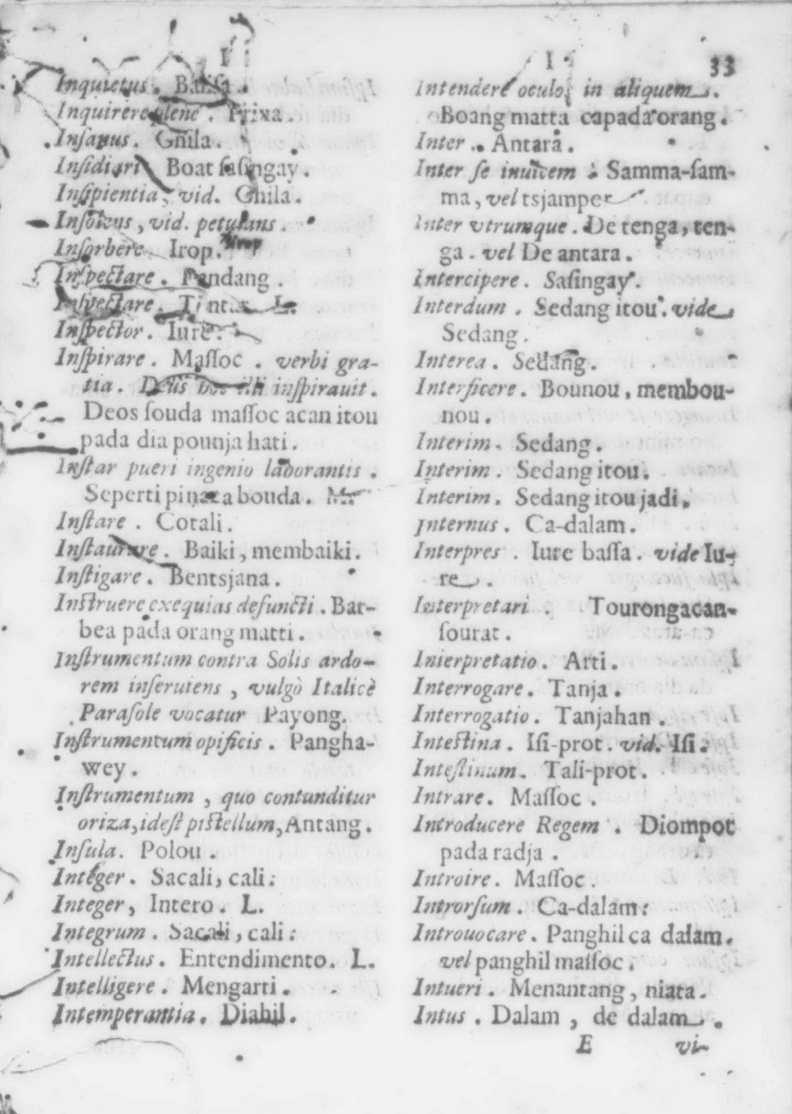 I
Inquietus. Bangsa.
Inquirere plene. Prixa.
Insanus. Ghila.
Insidiari Boat sasingay.
Insipientia, vid. Ghila.
Insolens, vid. petulans.
Insorbere. Irop.
Inspectare. Pandang.
Inspectare. L.
Inspector. Iure.
Inspirare. Massoc. verbi gra-
tia. Deus illi inspirauit.
Deos souda massoc acan itou
pada dia pounja hati.
Instar pueri ingenio laborantis.
Seperti bouda.
Instare. Cotali.
Instaurare. Baiki, membaiki.
Instigare. Bentsjana.
Instruere exequias defuncti. Bar-
bea pada orang matti.
Instrumentum contra Solis ardo-
rem inseruiens, vulgò Italicè
Parasole vocatur Payong.
Instrumentum opificis. Pangha-
wey.
Instrumentum, quo contunditur
oriza, idest pistellum, Antang.
Insula. Polou.
Integer. Sacali, cali.
Integer, Intero. L.
Integrum. Sacali, cali:
Intellectus. Entendimento. L.
Intelligere. Mengarti.
Intemperantia. Diahil.
I 33
Intendere oculos in aliquem.
Boang matta capada orang.
Inter. Antara.
Inter se inuicem. Samma-sam-
ma, vel tsjamper
Inter vtrumque. De tenga, ten-
ga. vel De antara.
Intercipere. Sasingay.
Interdum. Sedang itou. vide
Sedang.
Interea. Sedang.
Interficere. Bounou, membou-
nou.
Interim. Sedang.
Interim. Sedang itou.
Interim. Sedang itou jadi.
Internus. Ca-dalam.
Interpres. Iure bassa. vide Iu-
re.
Interpretari. Tourongacan-
sourat.
Interpretatio. Arti.
Interrogare. Tanja.
Interrogatio. Tanjahan.
Intestina. Isi-prot. vid. Isi.
Intestinum. Tali-prot.
Intrare. Massoc.
Introducere Regem. Diompot
pada radja.
Introire. Massoc.
Introrsum. Ca-dalam:
Introuocare. Panghil ca dalam.
vel panghil massoc.
Intueri. Menantang, niata.
Intus. Dalam, de dalam.
E vi-